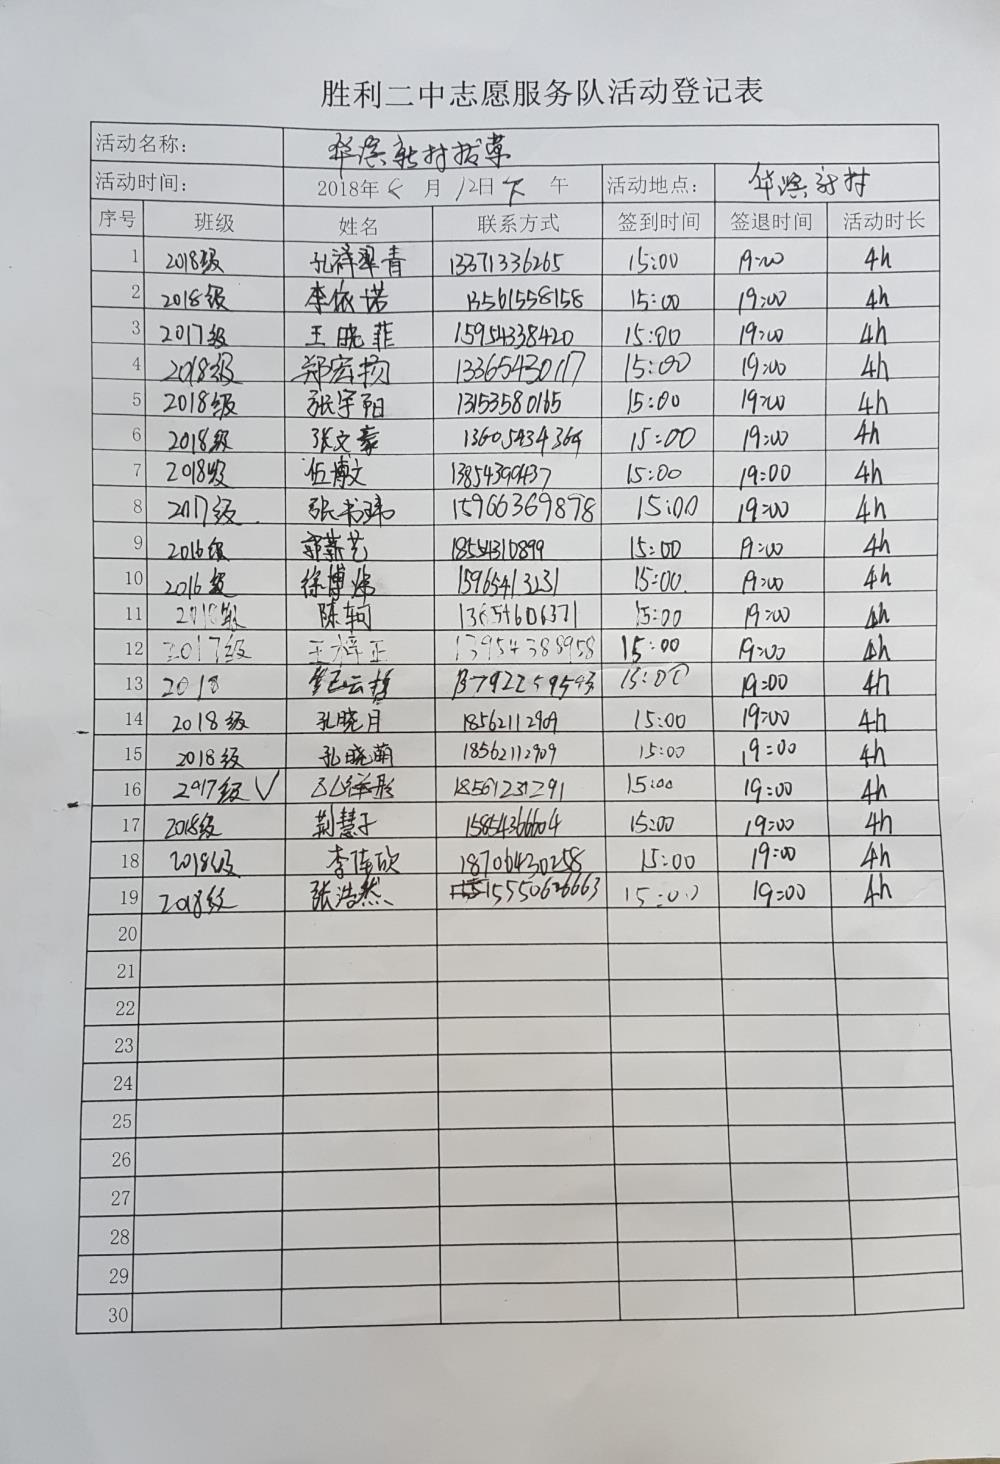 胜利二中志愿服务队活动登记表
活动名称： 华滨新村拔草
活动时间： 2018年 月 12日 下 午 活动地点： 华滨新村
序号 班级 姓名 联系方式 签到时间 签退时间 活动时长
1 2018级 孔泽翠青 13371336265 15:00 19:00 4h
2 2018级 李依诺 13561558158 15:00 19:00 4h
3 2017级 王晓菲 15954338420 15:00 19:00 4h
4 2018级 郑宏扬 13365430117 15:00 19:00 4h
5 2018级 张宇阳 13153580165 15:00 19:00 4h
6 2018级 张文豪 13605434364 15:00 19:00 4h
7 2018级 伍博文 13854390437 15:00 19:00 4h
8 2017级 张书玮 15966369878 15:00 19:00 4h
9 2016级 艺 18554310899 15:00 19:00 4h
10 2016级 徐博炜 15965413231 15:00 19:00 4h
11 2018级 陈轲 13654606371 15:00 19:00 4h
12 2017级 王梓正 13954388958 15:00 19:00 4h
13 2018 云哲 13792259593 15:00 19:00 4h
14 2018级 孔晓月 18562112909 15:00 19:00 4h
15 2018级 孔晓萌 18562112909 15:00 19:00 4h
16 2017级 √ 18561231291 15:00 19:00 4h
17 2018级 荆慧子 15854366604 15:00 19:00 4h
18 2018级 李倩欣 18706430258 15:00 19:00 4h
19 2018级 张浩然 15550626663 15:00 19:00 4h
20
21
22
23
24
25
26
27
28
29
30